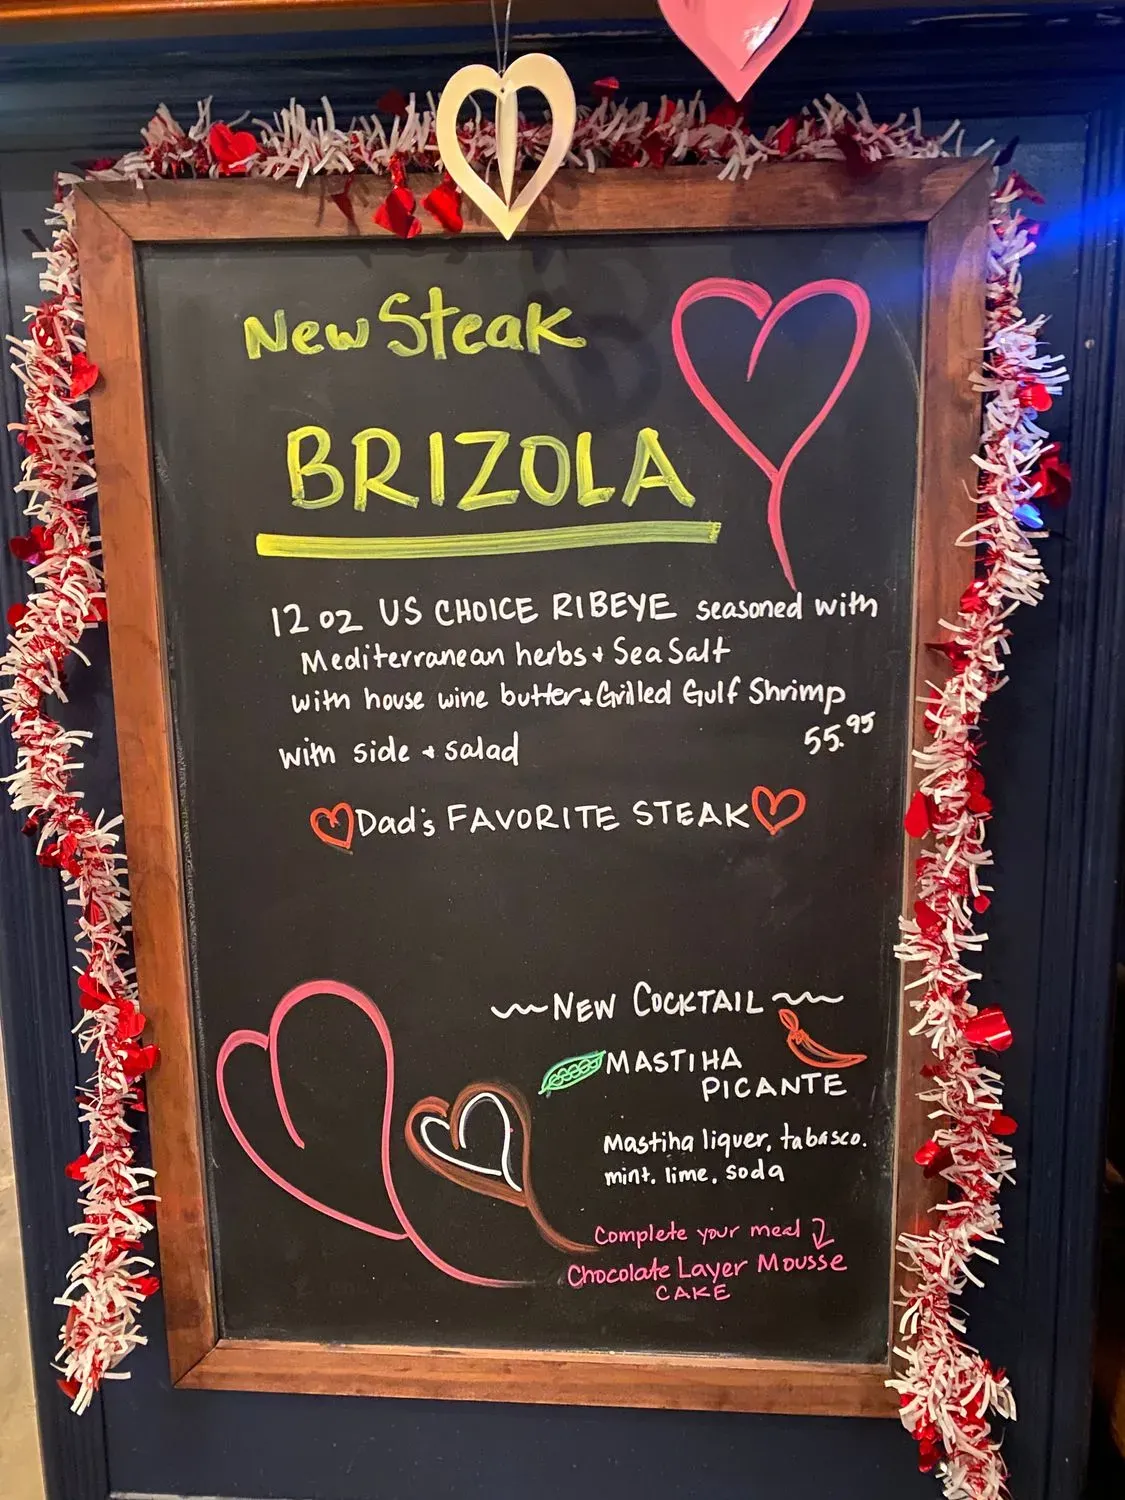 New Steak
BRIZOLA
12 oz US CHOICE RIBEYE seasoned with
Mediterranean herbs + Sea Salt
with house wine butter + Grilled Gulf Shrimp
with side + salad 55.95
Dad's FAVORITE STEAK
NEW COCKTAIL
MASTIHA
PICANTE
Mastiha liquer, tabasco.
mint. lime. soda
Complete your meal
Chocolate Layer Mousse
CAKE